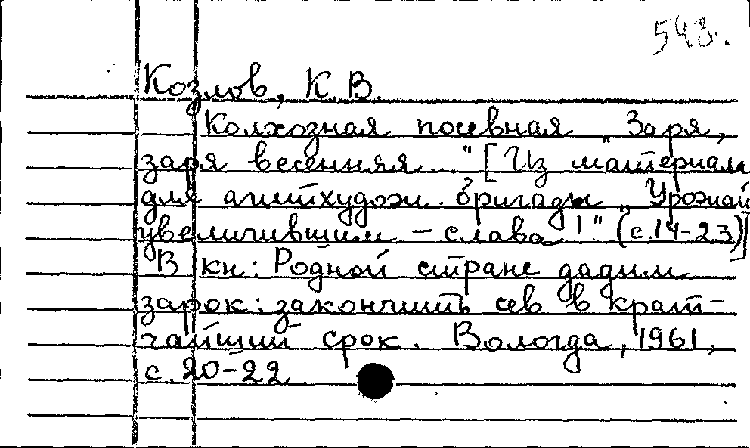 543.
Козлов, К.В.
Колхозная посевная „Заря,
заря весенняя..." [Из материала
для агитхудож. бригады „Урожай
увеличившим – слава!" (с.14-23)]
В кн: Родной стране дадим
зарок: закончить сев в крат-
чайший срок. Вологда, 1961,
с. 20-22